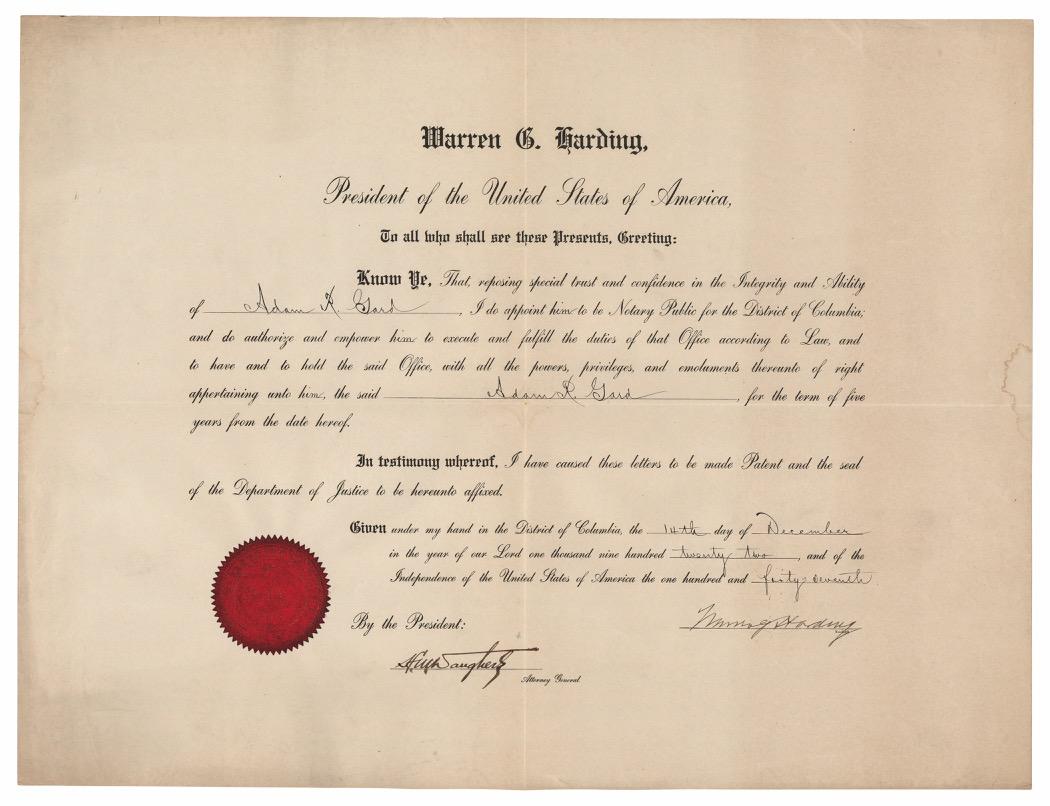 Warren G. Harding,
President of the United States of America,
To all who shall see these Presents, Greeting:
Know Ye, That, reposing special trust and confidence in the Integrity and Ability
of Adam R. Gard, I do appoint him to be Notary Public for the District of Columbia;
and do authorize and empower him to execute and fulfill the duties of that Office according to Law, and
to have and to hold the said Office, with all the powers, privileges, and emoluments thereunto of right
appertaining unto him, the said Adam R. Gard, for the term of five
years from the date hereof.
In testimony whereof, I have caused these letters to be made Patent and the seal
of the Department of Justice to be hereunto affixed.
Given under my hand in the District of Columbia, the 14th day of December
in the year of our Lord one thousand nine hundred twenty two, and of the
Independence of the United States of America the one hundred and forty seventh.
By the President:
Warren G Harding
H M Daugherty
Attorney General.